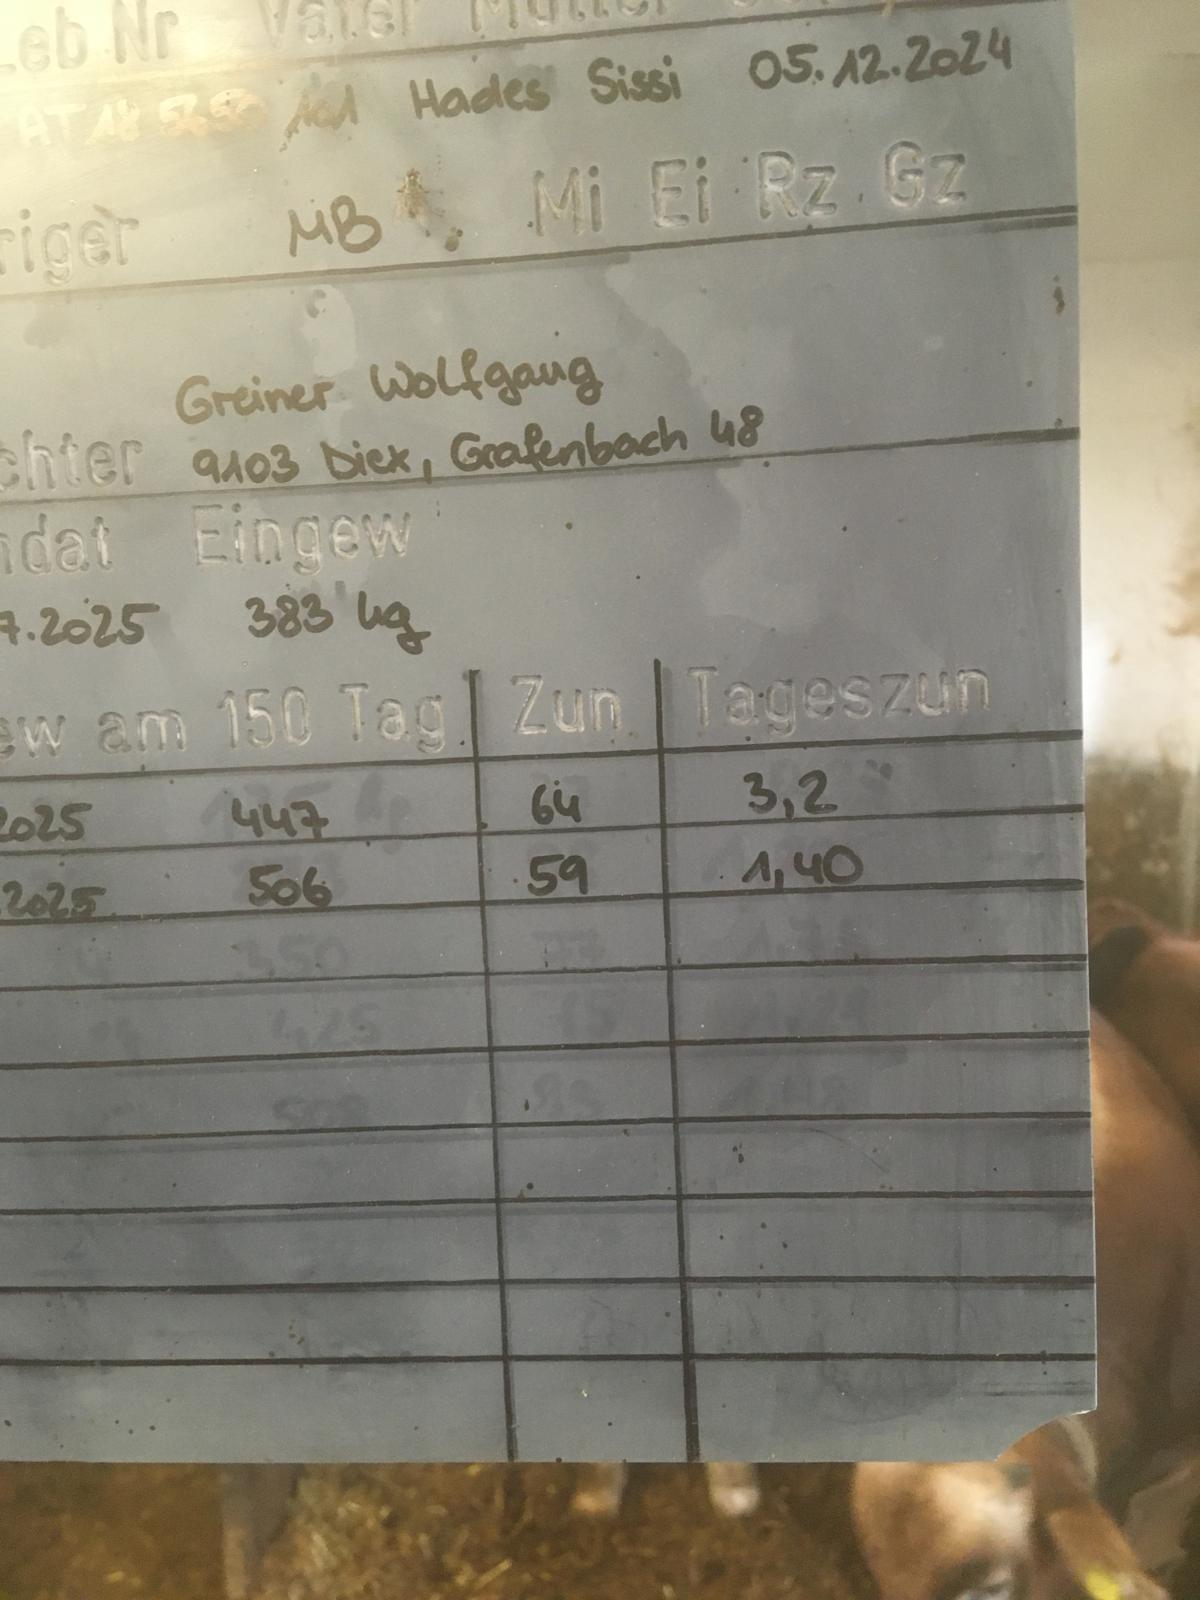 Leb Nr Vater Mutter
AT 18 101 Hades Sissi 05.12.2024
riger MB Mi Ei Rz Gz
Greiner Wolfgang
chter 9103 Diex, Grafenbach 48
ndat Eingew
7.2025 383 kg
ew am 150 Tag Zun Tageszun
2025 447 64 3,2
.2025 506 59 1,40
350
425